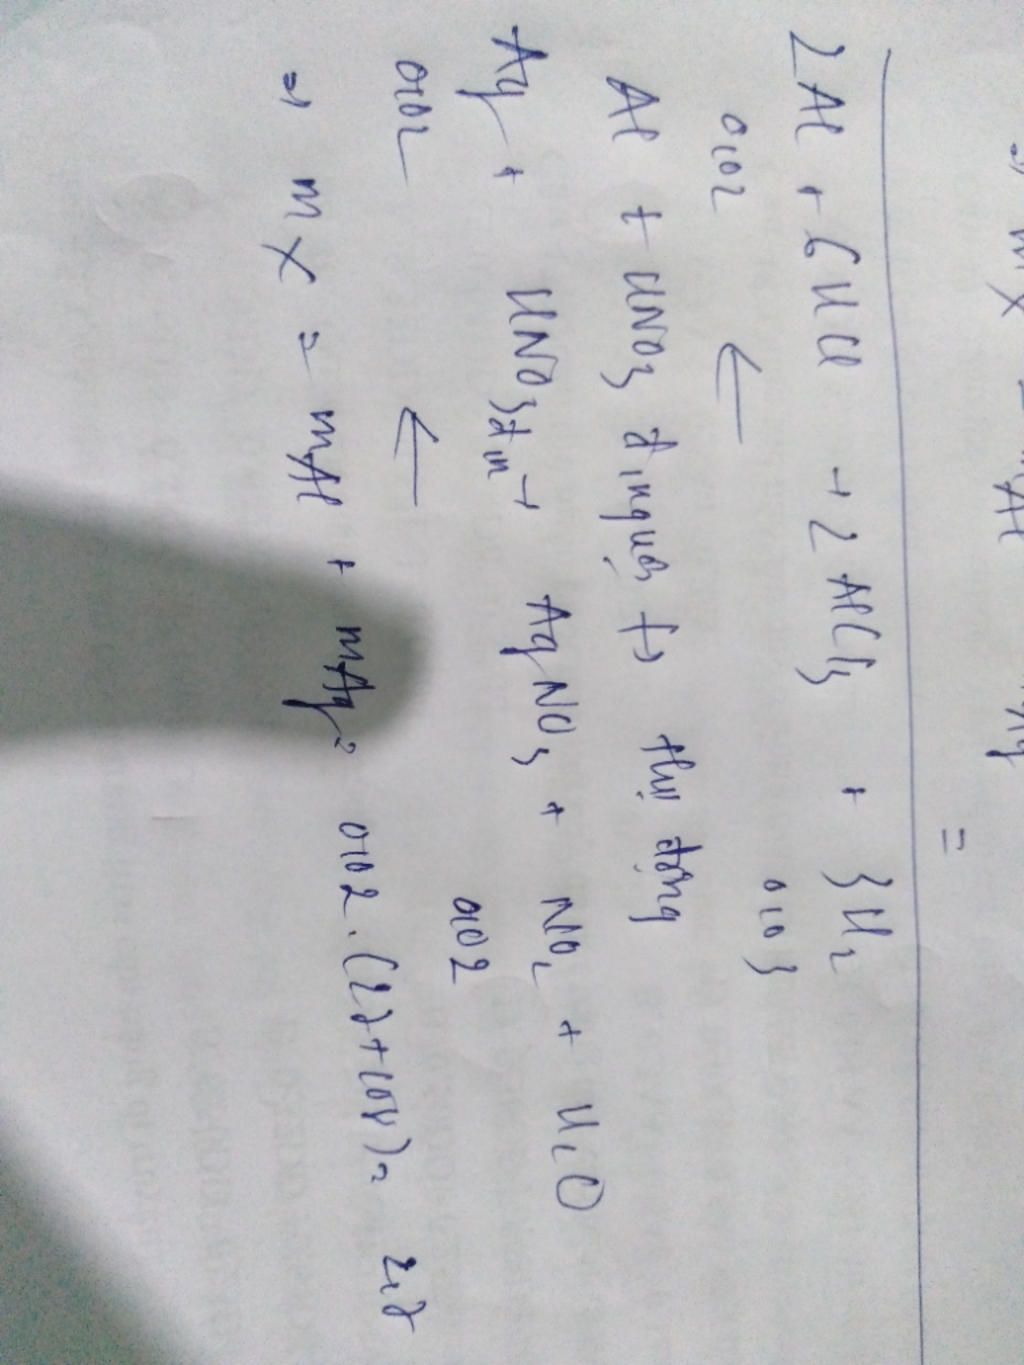 =) mX = mAl mAg =
2Al + 6HCl → 2AlCl3 + 3H2
0,02 ← 0,03
Al + HNO3 đ, nguội → thụ động
Ag + HNO3 đ, n → AgNO3 + NO2 + H2O
0,02 ← 0,02
=) mX = mAl + mAg = 0,02.(27+108) = 2,7